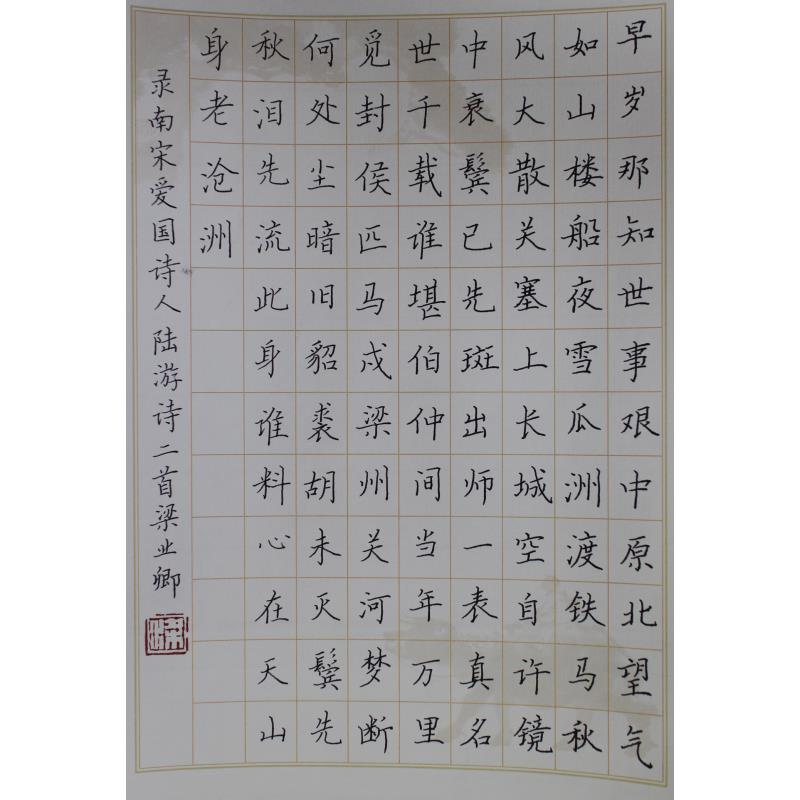 早岁那知世事艰中原北望气
如山楼船夜雪瓜洲渡铁马秋
风大散关塞上长城空自许镜
中衰鬓已先斑出师一表真名
世千载谁堪伯仲间当年万里
觅封侯匹马戍梁州关河梦断
何处尘暗旧貂裘胡未灭鬓先
秋泪先流此身谁料心在天山
身老沧洲
录南宋爱国诗人陆游诗二首梁业卿